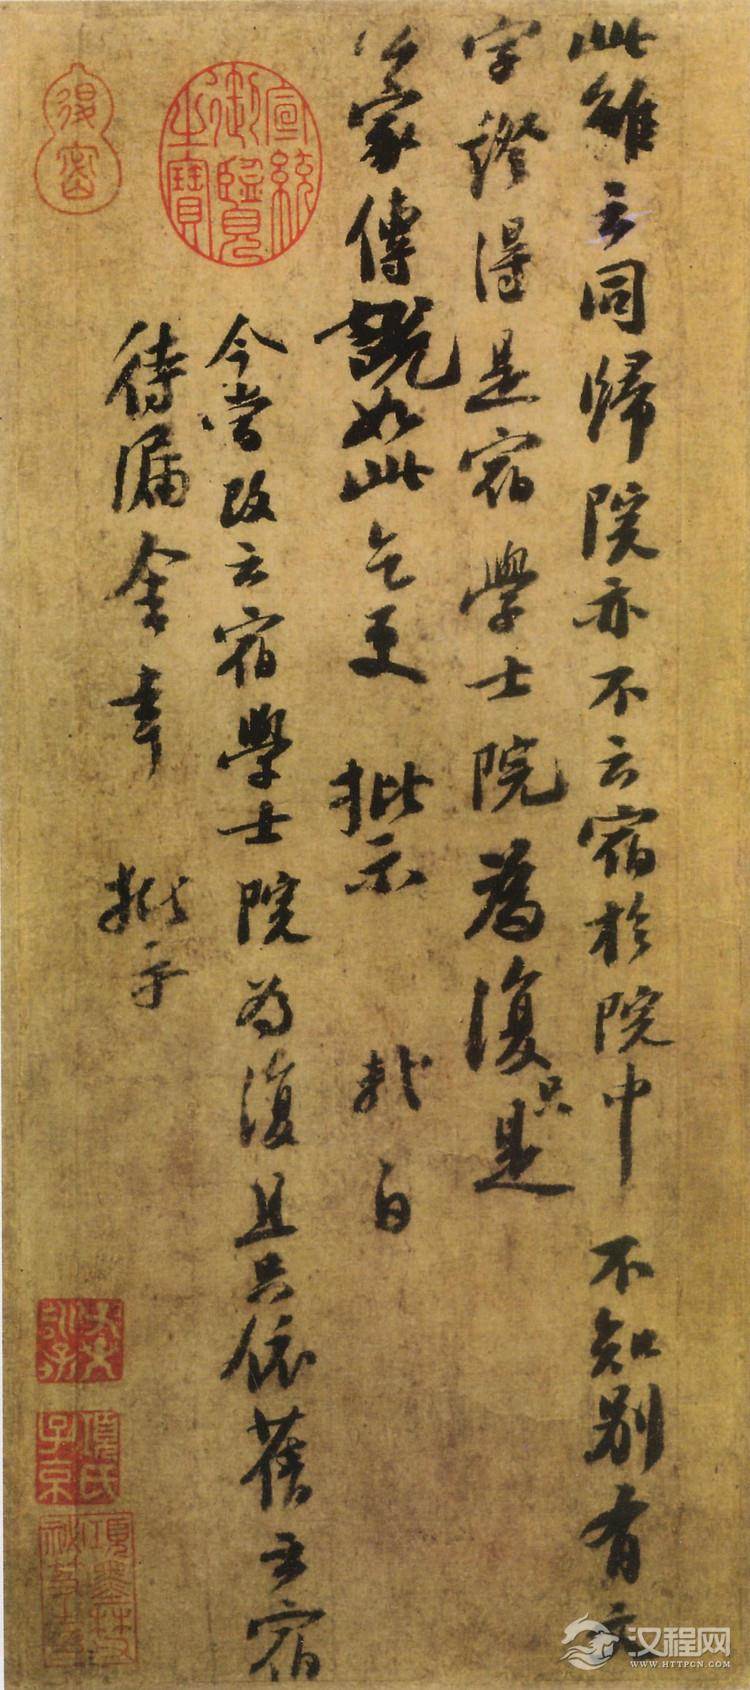 此雖云同歸院亦不云宿於院中 不知別有文
字證得是宿學士院為復只是
公家傳說如此乞更 批示 軾白
今當改云宿學士院為復且只依舊云宿
待漏舍幸 批示
宣統御覽之寶
項氏子京
項墨林父秘笈之印
汉程网
WWW.HTTPCN.COM